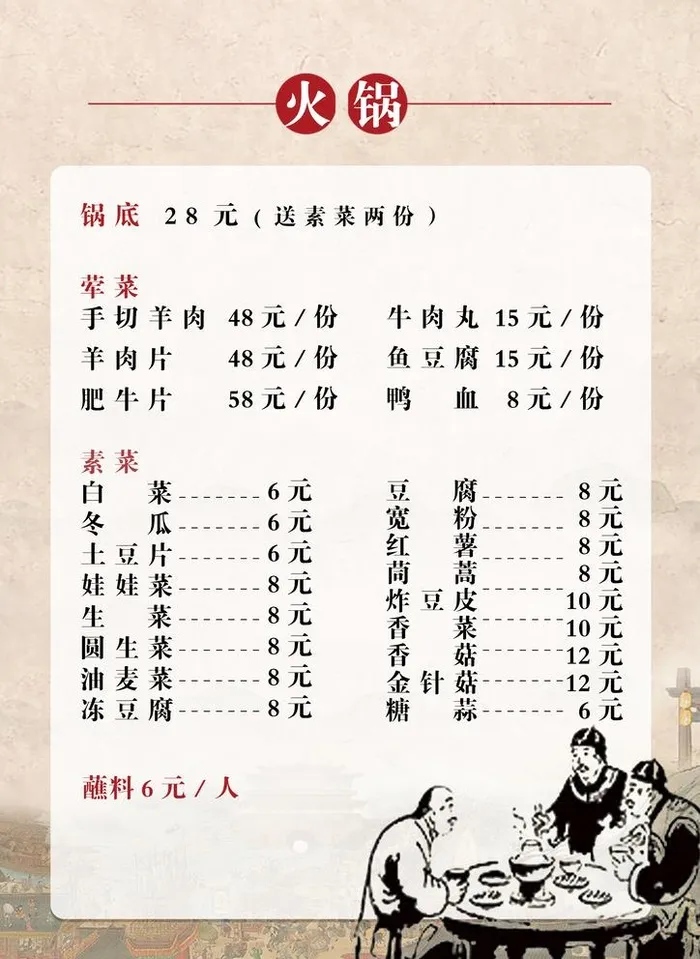 火锅
锅底 28元(送素菜两份)
荤菜
手切羊肉 48元/份
羊肉片 48元/份
肥牛片 58元/份
牛肉丸 15元/份
鱼豆腐 15元/份
鸭血 8元/份
素菜
白菜-------6元
冬瓜-------6元
土豆片-------6元
娃娃菜-------8元
生菜-------8元
圆生菜-------8元
油麦菜-------8元
冻豆腐-------8元
豆腐-------8元
宽粉-------8元
红薯-------8元
茼蒿-------8元
炸豆皮-------10元
香菜-------10元
香菇-------12元
金针菇-------12元
糖蒜-------6元
蘸料6元/人